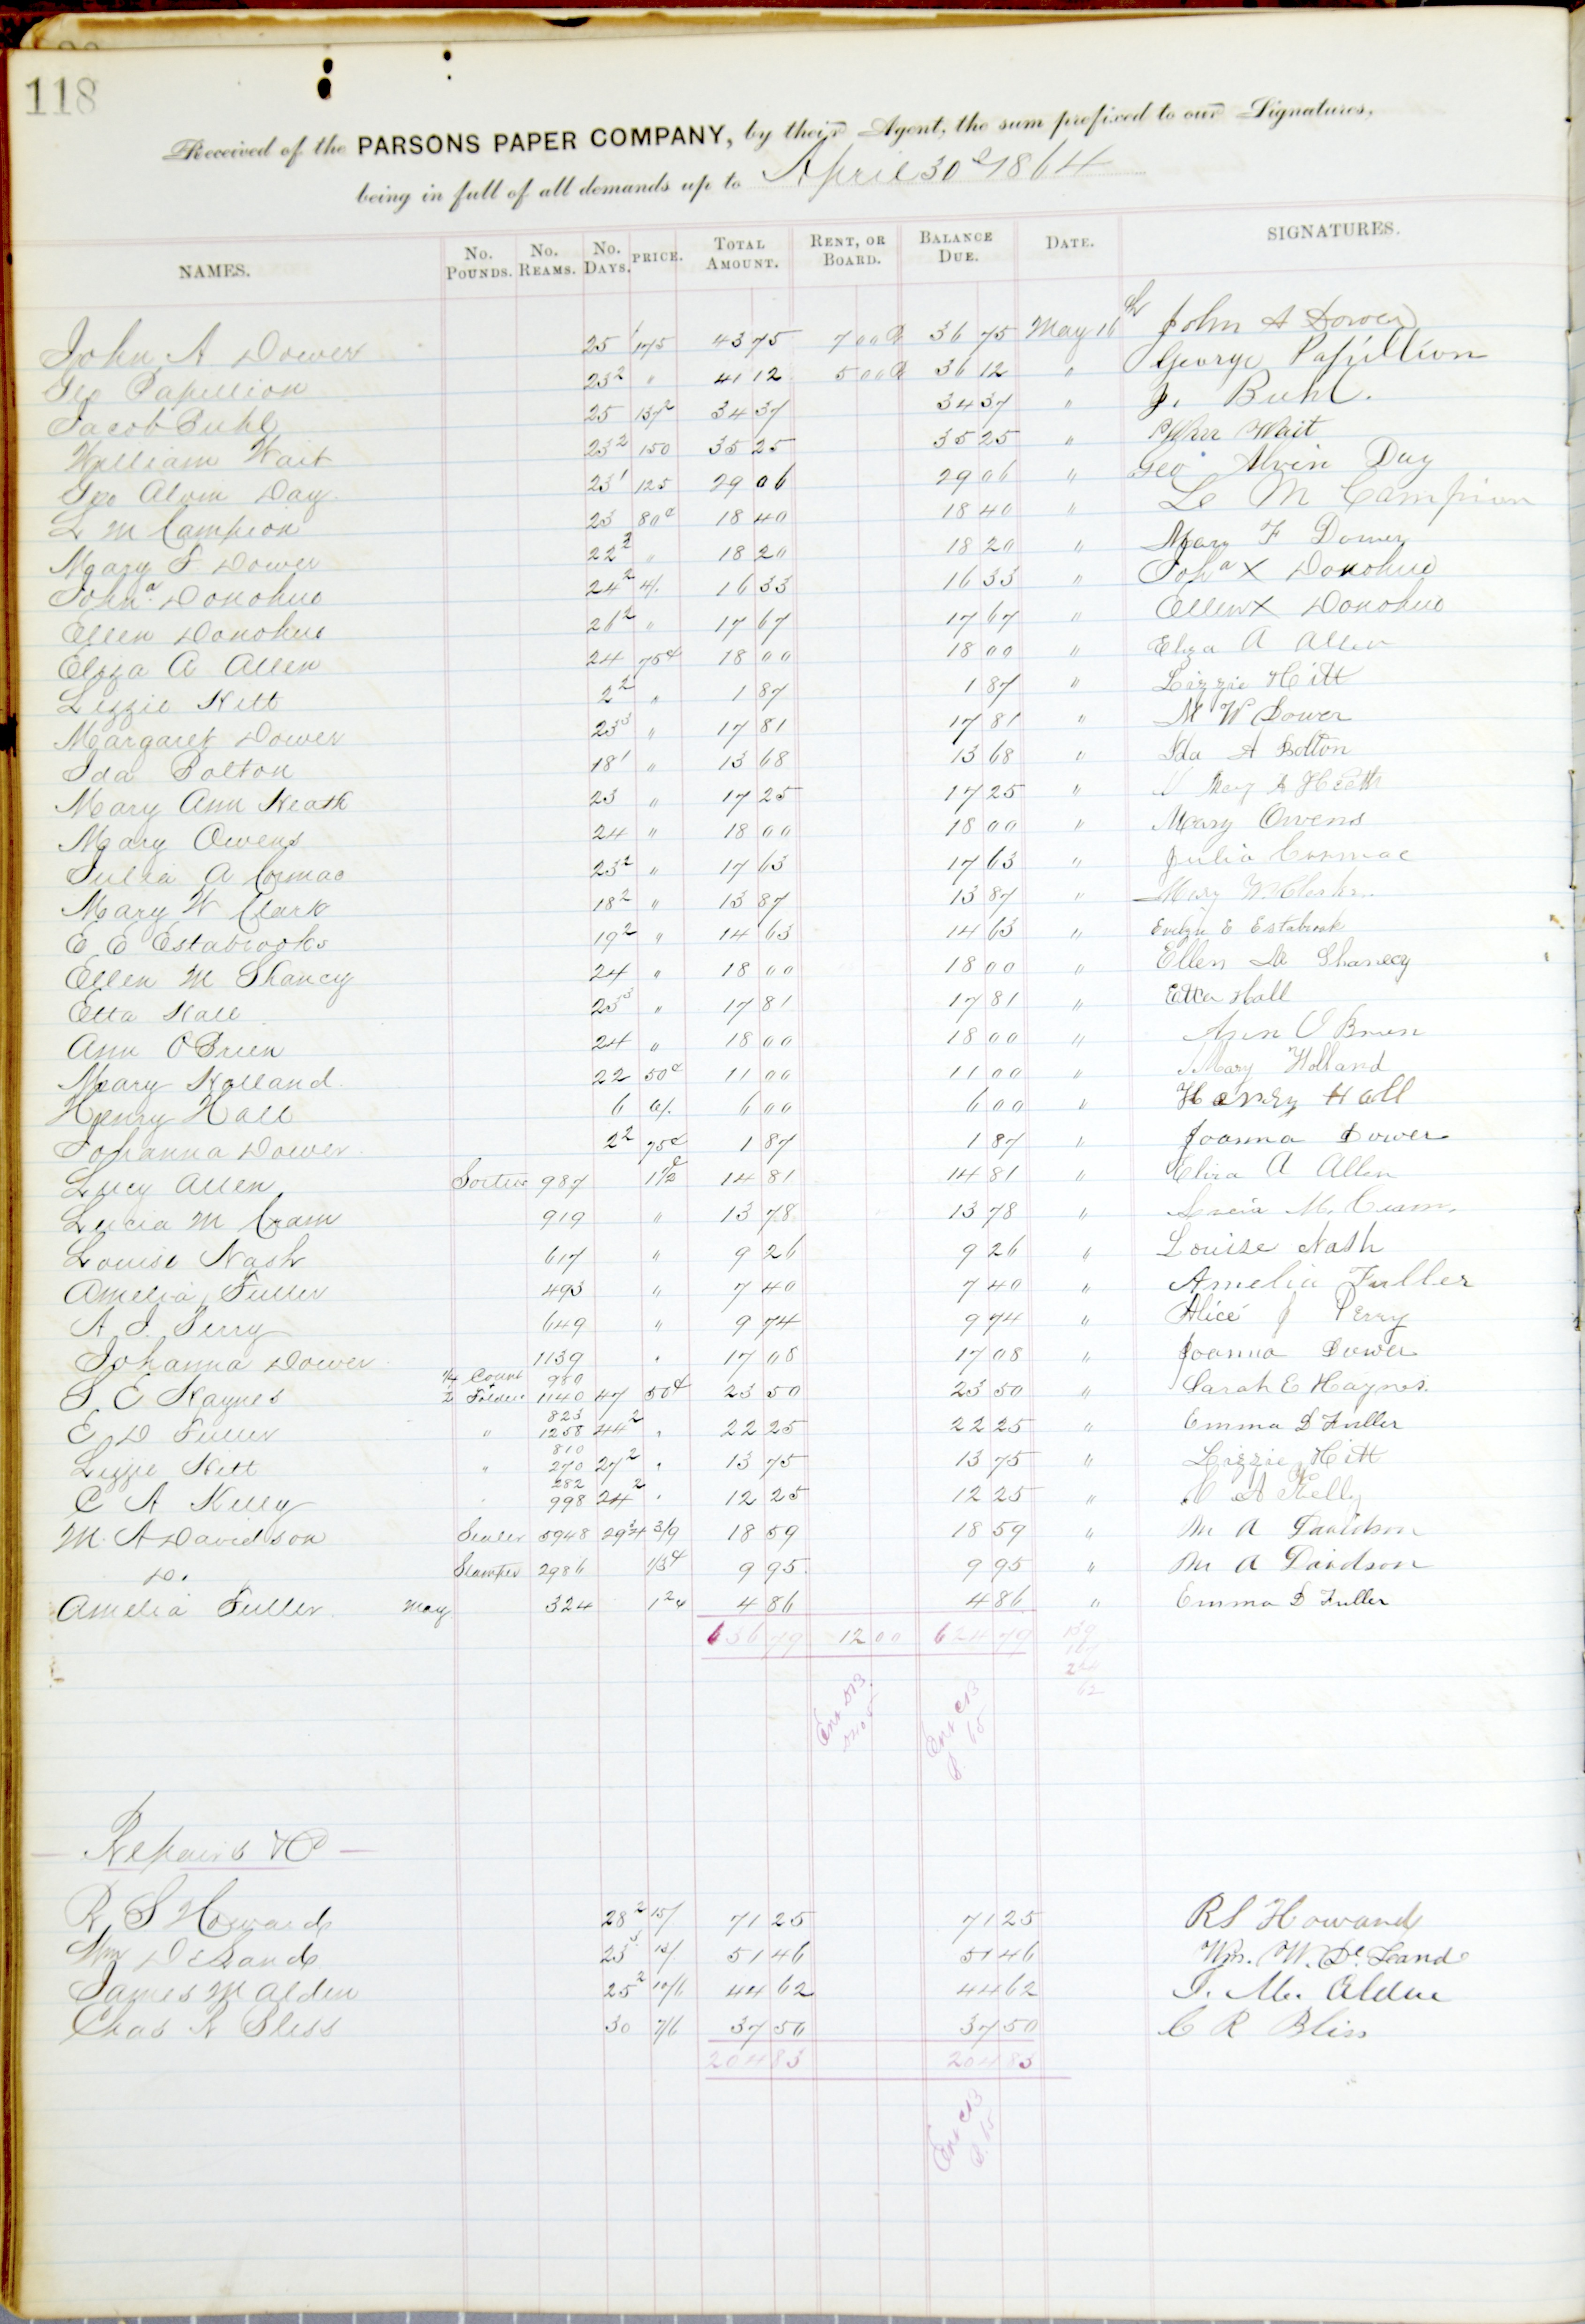 118
Received of the PARSONS PAPER COMPANY, by their Agent, the sum prefixed to our Signatures,
being in full of all demands up to April 30th 1864
NAMES. No. Pounds. No. Reams. No. Days. PRICE. Total Amount. Rent, or Board. Balance Due. Date. SIGNATURES.
John A Dower 25 175 43 75 7 00 36 75 May 16 John A Dower
Geo Papillion 23 2 " 41 12 5 00 36 12 " George Papillion
Jacob Buhl 25 137 2 34 37 34 37 " J. Buhl.
William Wait 23 2 150 35 25 35 25 " Wm Wait
Geo Alvin Day 23 1 125 29 06 29 06 " Geo Alvin Day
L M Campion 23 80c 18 40 18 40 " L M Campion
Mary F. Dower 22 3 " 18 20 18 20 " Mary F Dower
Joh.a Donohue 24 2 4/. 16 33 16 33 " Joh a X Donohue
Ellen Donohue 26 2 " 17 67 17 67 " Ellen X Donohue
Eliza A Allen 24 75c 18 00 18 00 " Eliza A Allen
Lizzie Hitt 2 2 " 1 87 1 87 " Lizzie Hitt
Margaret Dower 23 3 " 17 81 17 81 " M W Dower
Ida Bolton 18 1 " 13 68 13 68 " Ida A Bolton
Mary Ann Heath 23 " 17 25 17 25 " Mary A Heath
Mary Owens 24 " 18 00 18 00 " Mary Owens
Julia A Cormac 23 2 " 17 63 17 63 " Julia Cormac
Mary W Clark 18 2 " 13 87 13 87 " Mary W. Clark
E E Estabrooks 19 2 " 14 63 14 63 " E Estabrook
Ellen M Shancy 24 " 18 00 18 00 " Ellen M Shancy
Etta Hall 23 3 " 17 81 17 81 " Etta Hall
Ann O Brien 24 " 18 00 18 00 " Ann O Brien
Mary Holland 22 50c 11 00 11 00 " Mary Holland
Henry Hall 6 6/. 6 00 6 00 " Henry Hall
Johanna Dower 2 2 75c 1 87 1 87 " Joanna Dower
Lucy Allen 987 1 1/2 14 81 14 81 " Eliza A Allen
Lucia M Cram 919 " 13 78 13 78 " Lucia M. Cram.
Louise Nash 617 " 9 26 9 26 " Louise Nash
Amelia Fuller 493 " 7 40 7 40 " Amelia Fuller
A. J. Perry 649 " 9 74 9 74 " Alice J Perry
Johanna Dower 1139 " 17 08 17 08 " Joanna Dower
Count 950
S. E Haynes 1140 47 50c 23 50 23 50 " Sarah E Haynes.
823
E D Fuller " 1258 44 2 " 22 25 22 25 " Emma D Fuller
810
Lizzie Hitt " 270 27 2 " 13 75 13 75 " Lizzie Hitt
282
C A Kelly 998 24 2 " 12 25 12 25 " C A Kelly
M. A Davidson Sealer 5948 29 3/4 3/9 18 59 18 59 " M A Davidson
Do. Stamper 2986 1/3c 9 95 9 95 " M A Davidson
Amelia Fuller May 324 4 86 4 86 " Emma D Fuller
636 79 12 00 624 79
Repairs &C
R S Howard 28 2 15/ 71 25 71 25 R S Howard
Wm DeLand 51 46 51 46 Wm. W. De Land
James M Alden 25 2 10/6 44 62 44 62 J. M. Alden
Chas R Bliss 30 7/6 37 50 37 50 C R Bliss
204 83 204 83